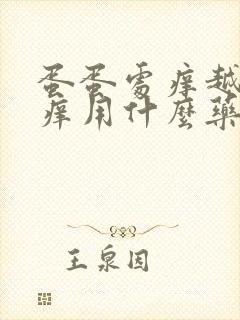 蛋蛋處癢越
癢用什麼藥
王泉因